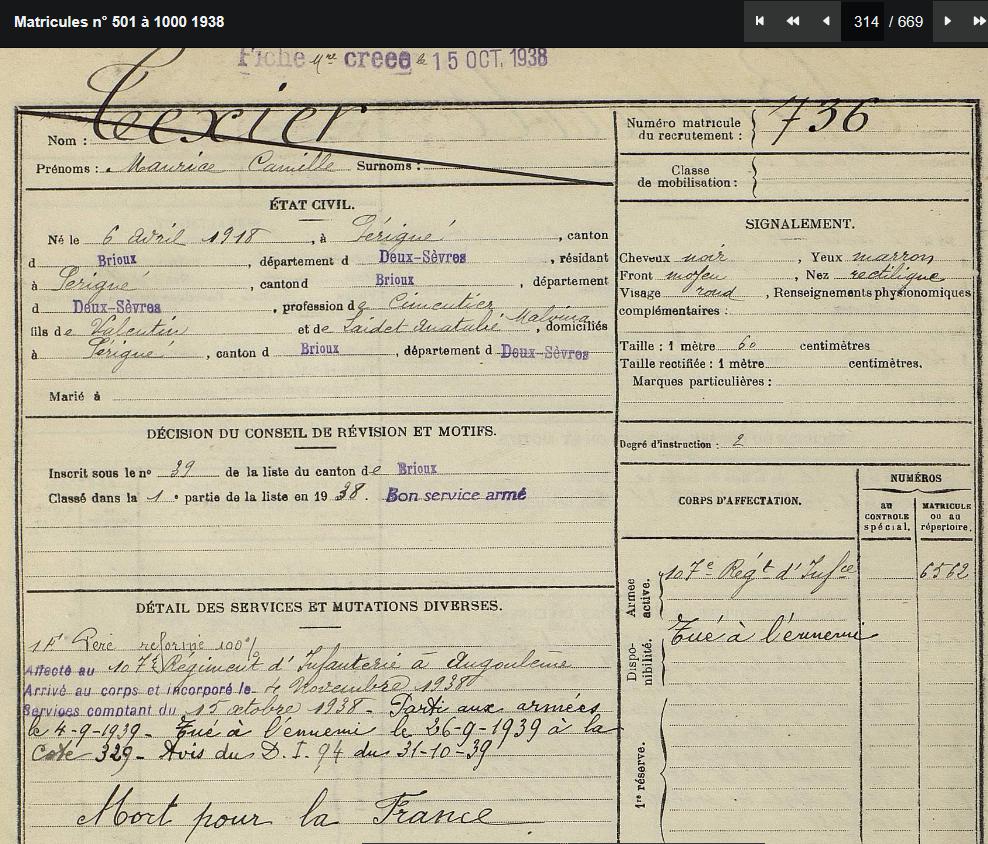 Matricules n° 501 à 1000 1938
314 / 669
Fiche Mre créée le 15 OCT. 1938
Nom : Texier
Prénoms : Maurice Camille Surnoms :
ÉTAT CIVIL.
Né le 6 avril 1918, à Périgné, canton
d Brioux, département d Deux-Sèvres, résidant
à Périgné, canton d Brioux, département
d Deux-Sèvres, profession de Cimentier
fils de Valentin et de Laidet Anatalie, domiciliés
à Périgné, canton d Brioux, département d Deux-Sèvres
Marié à
DÉCISION DU CONSEIL DE RÉVISION ET MOTIFS.
Inscrit sous le n° 39 de la liste du canton de Brioux
Classé dans la 1e partie de la liste en 1938. Bon service armé
DÉTAIL DES SERVICES ET MUTATIONS DIVERSES.
Père réformé 100%
Affecté au 107e Régiment d'Infanterie à Angoulême
Arrivé au corps et incorporé le Novembre 1938
Services comptant du 15 octobre 1938 - Parti aux armées
le 4-9-1939 - Tué à l'ennemi le 26-9-1939 à la
Cote 329 - Avis du D.I. 94 du 31-10-39
Mort pour la France
Numéro matricule du recrutement : 736
Classe de mobilisation :
SIGNALEMENT.
Cheveux noir, Yeux marron
Front moyen, Nez rectiligne
Visage rond, Renseignements physionomiques
complémentaires :
Taille : 1 mètre 60 centimètres
Taille rectifiée : 1 mètre centimètres.
Marques particulières :
Degré d'instruction : 2
CORPS D'AFFECTATION.
NUMÉROS
au CONTROLE spécial.
MATRICULE ou au répertoire.
Armée active.
107e Régt d'Infie
6562
Disponibilité.
Tué à l'ennemi
1re réserve.